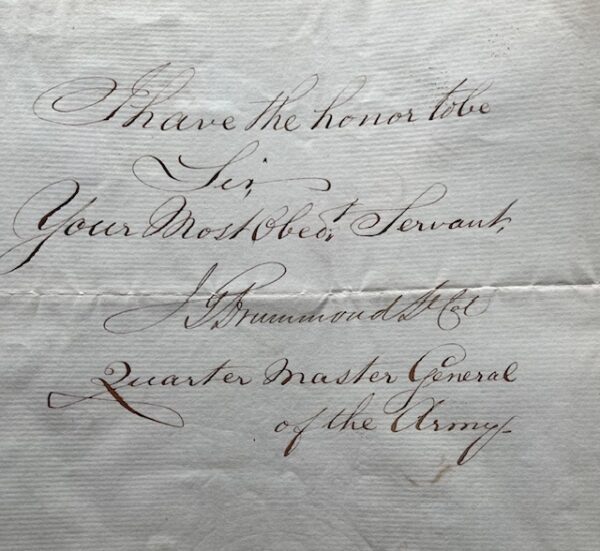 I have the honor to be
Sir,
Your Most Obed.t Servant,
J G Drummond Lt Col
Quarter Master General
of the Army